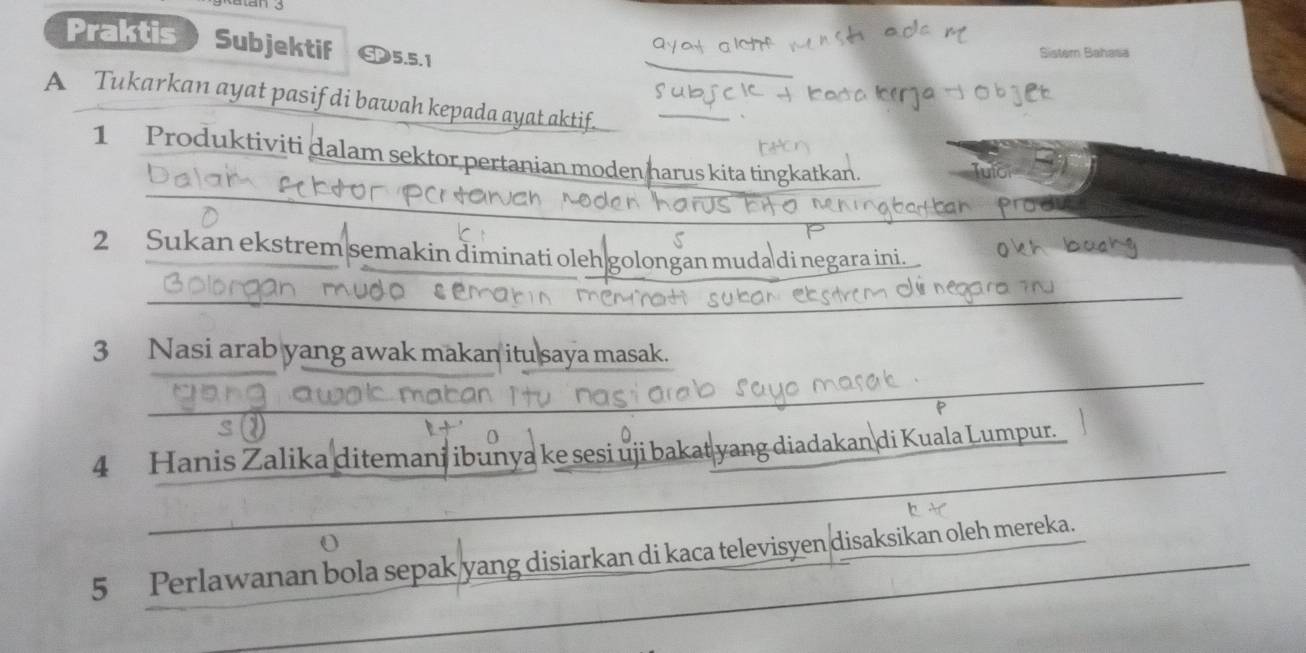 Praktis Subjektif SP 5.5.1
ayat aktif mensti ada me
Sistem Bahasa
subjek + kata kerja + objek
A Tukarkan ayat pasif di bawah kepada ayat aktif.
1 Produktiviti dalam sektor pertanian moden harus kita tingkatkan.
Dalam sektor pertanian moden harus kita meningkatkan
2 Sukan ekstrem semakin diminati oleh golongan muda di negara ini.
oleh buang
Golongan muda semakin meminati sukan ekstrem di negara ini
3 Nasi arab yang awak makan itu saya masak.
yang awak makan itu nasi arab saya masak.
4 Hanis Zalika ditemani ibunya ke sesi uji bakat yang diadakan di Kuala Lumpur.
5 Perlawanan bola sepak yang disiarkan di kaca televisyen disaksikan oleh mereka.